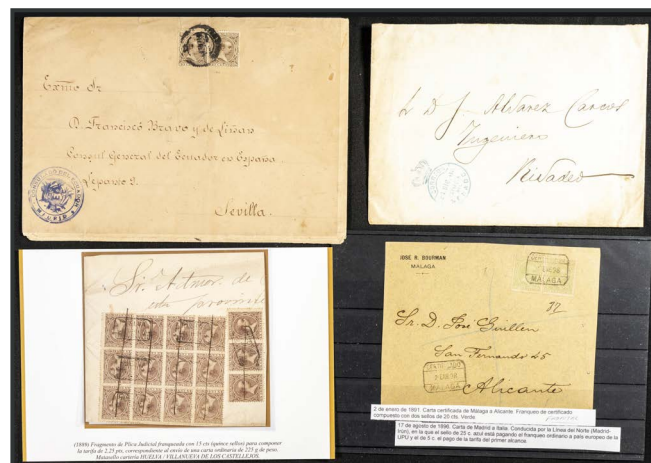 Exmo Sr
D. Francisco Bravo y de Liñan
Consul General del Ecuador en España
Lepanto 2.
Sevilla.
D. J. Alvarez Cascos
Ingeniero
Rivadeo
Sr. Admor. de
provincia
(1889) Fragmento de Plica Judicial franqueada con 15 cts (quince sellos) para componer
la tarifa de 2,25 pts, correspondiente al envío de una carta ordinaria de 225 g de peso.
Matasello cartería HUELVA / VILLANUEVA DE LOS CASTELLEJOS.
JOSE R. BOURMAN
MÁLAGA
CERTIFICADO
MALAGA
Sr. D. José Guillen
San Fernando 45
CERTIFICADO
MALAGA
Alicante
2 de enero de 1891. Carta certificada de Málaga a Alicante. Franqueo de certificado
compuesto con dos sellos de 20 cts. Verde.
17 de agosto de 1896. Carta de Madrid a Italia. Conducida por la Línea del Norte (Madrid-
Irún), en la que el sello de 25 c. azul está pagando el franqueo ordinario a país europeo de la
UPU y el de 5 c. el pago de la tarifa del primer alcance.